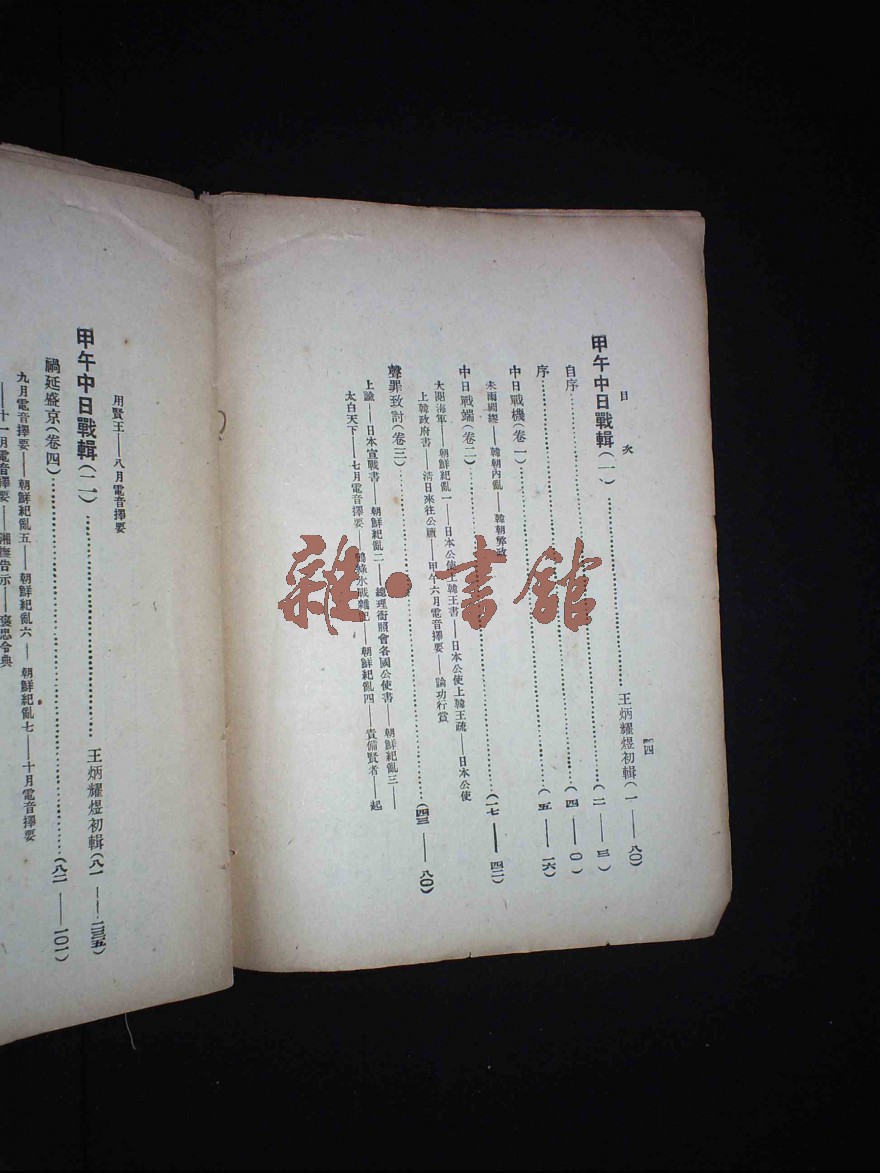 目 次
甲午中日戰輯(一)……王炳耀煜初輯(一——八〇)
自序……(二——三)
序……(四——〇)
中日戰機(卷一)……(五——一六)
未雨綢繆——韓朝內亂——韓朝弊政
中日戰端(卷二)……(一七——四二)
大閱海軍——朝鮮紀亂一——日本公使上韓王書——日本公使上韓王疏——日本公使
上韓政府書——淸日來往公牘——甲午六月電音擇要——論功行賞
聲罪致討(卷三)……(四三——八〇)
上諭——日本宣戰書——朝鮮紀亂二——總理衙照會各國公使書——朝鮮紀亂三——
太白天下——七月電音擇要——鴨綠水戰雜記——朝鮮紀亂四——責備賢者——起
一四
用賢王——八月電音擇要
甲午中日戰輯(二)……王炳耀煜初輯(八一——二三五)
禍延盛京(卷四)……(八二——一〇一)
九月電音擇要——朝鮮紀亂五——朝鮮紀亂六——朝鮮紀亂七——十月電音擇要
——十一月電音擇要——湘撫告示——褒忠令典
雜·書館